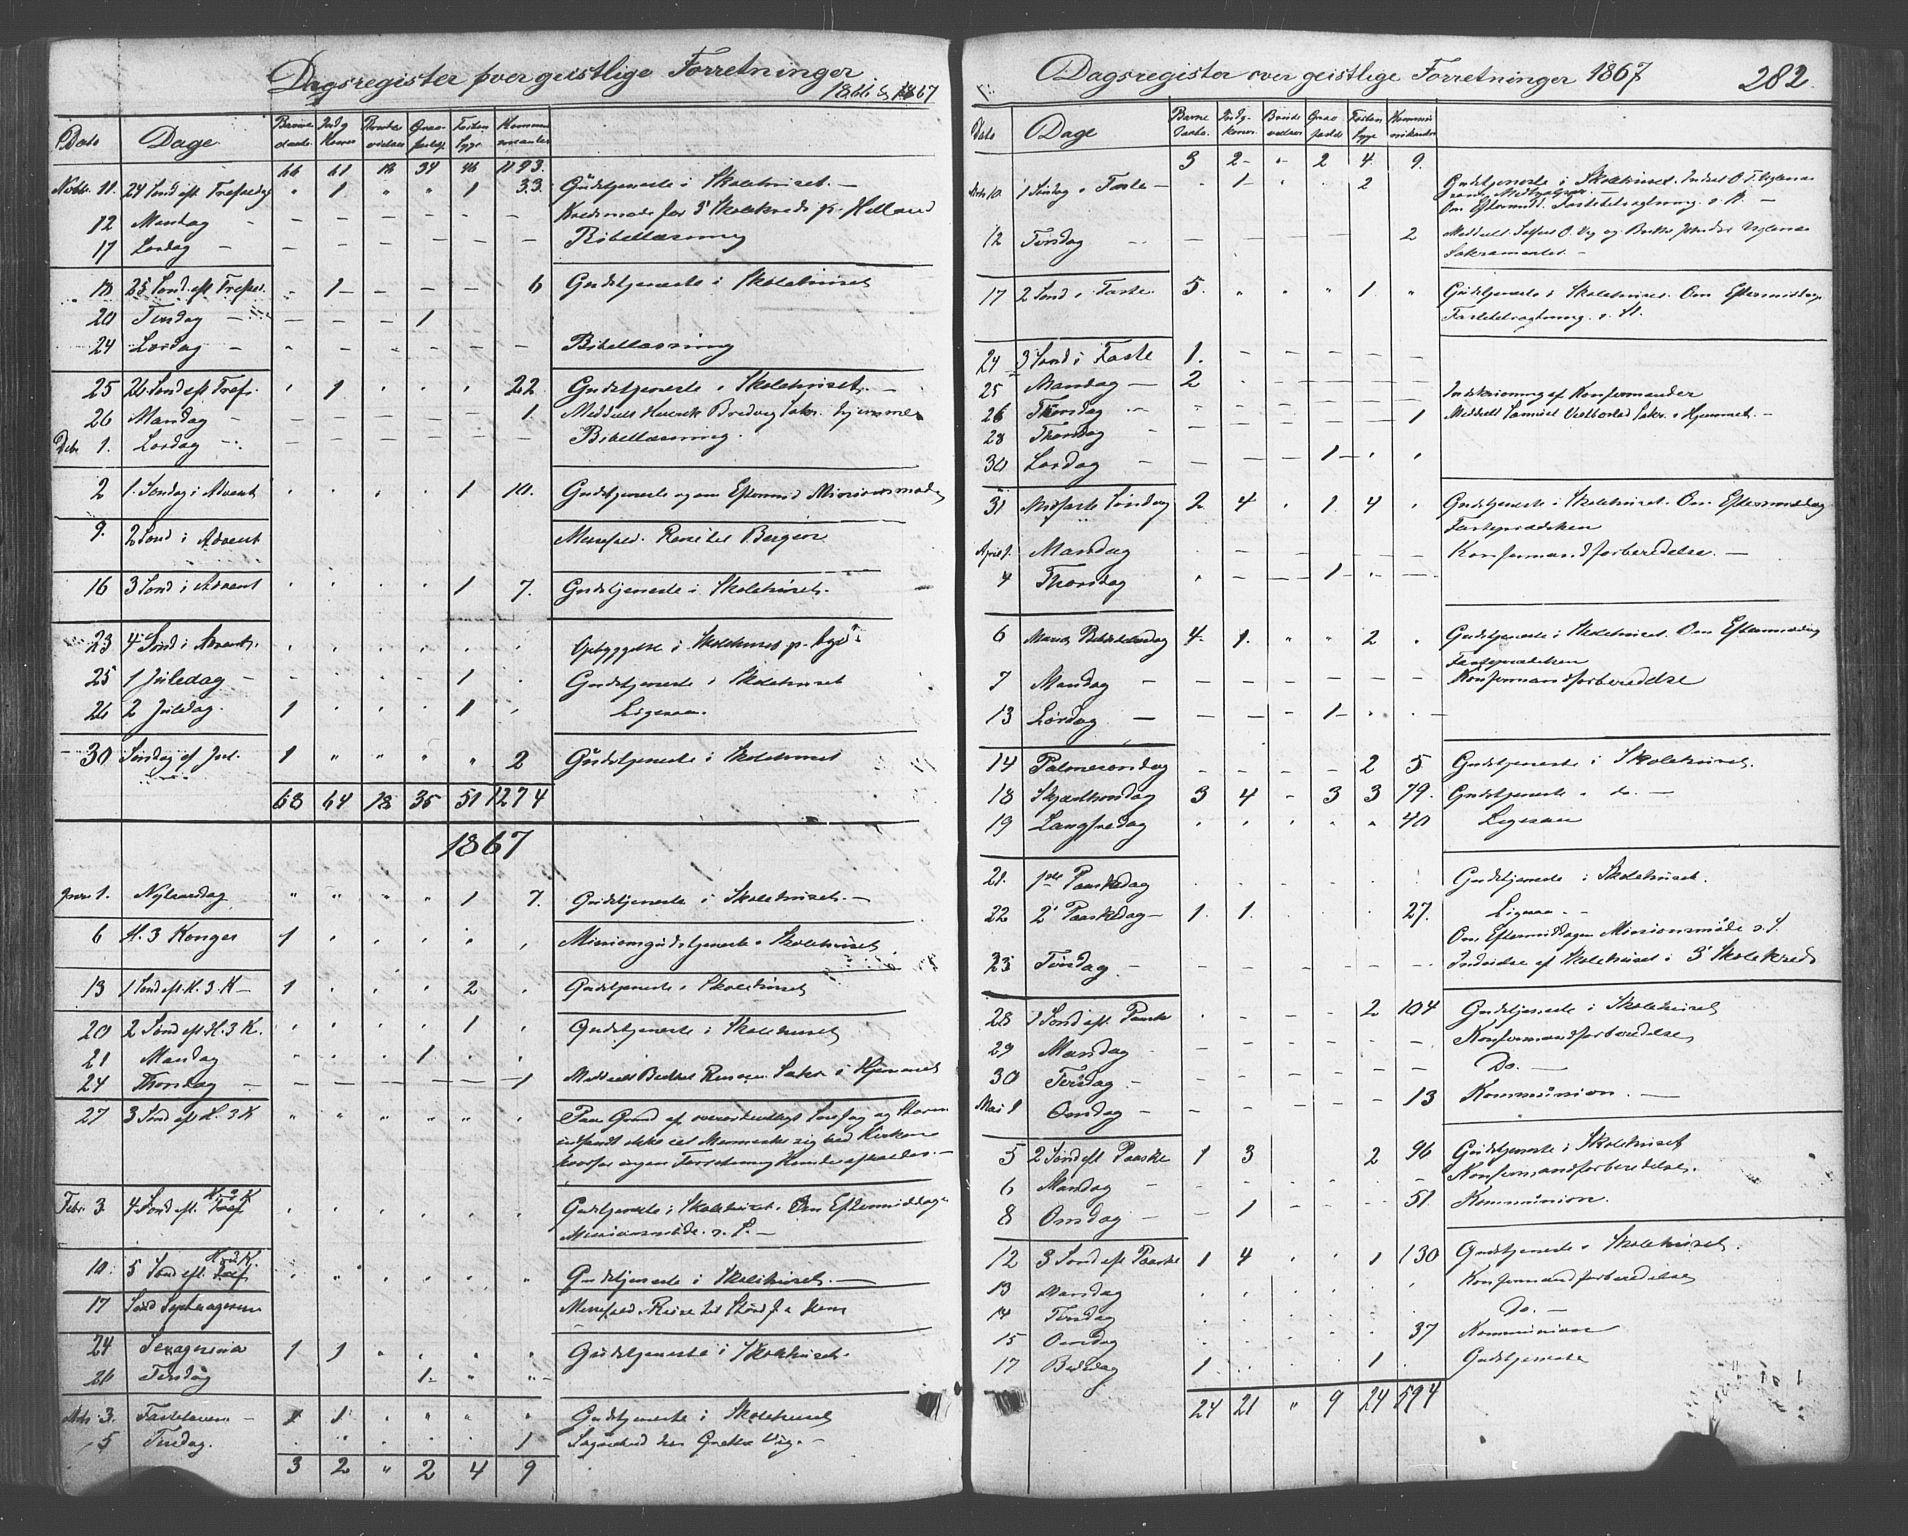 Dagsregister over geistlige Forretninger 1866 & 1867
Dato Dage Barne daabe Indg Koner Brude vielser Grav fæstelse Commu nicanter
66 61 18 34 46 1193.
Novbr. 11. 24 Sønd eft Trefoldig " 1 " " 1 33 Gudstjeneste i Skolehuset. —
12 Mandag — Kredsmøde for 5' Skolekreds p. Helland
17 Lørdag — Bibellæsning
18 25 Sønd. eft Trefol. - 1 - - - 6 Gudstjeneste i Skolehuset
20 Tirsdag — - - - 1
24 Lørdag — Bibellæsning
25 26 Sønd eft Tref. ' 1 ' ' ' 22 Gudstjeneste i Skolehuset. —
26 Mandag 1. Meddelt Henrik Bredvig Sakr. hjemme
Debr 1. Lørdag — Bibellæsning.
2 1. Søndag i Advent ' ' ' ' 1 10. Gudstjeneste og om Efterm. Missionsmøde
9. 2 Sønd i Advent Messefald. Reise til Bergen
16 3 Sønd i Advent ' ' ' ' 1 7. Gudstjeneste i Skolehuset.
23 4 Sønd i Advent. Opbyggelse i Skolehuset p.
25 1 Juledag — ' ' ' ' 1 ' Gudstjeneste i Skolehuset
26 2 Juledag. 1 ' ' ' 1 ' Ligesaa.
30 Søndag ef Jul. 1 " " " " 2 Gudstjeneste i Skolehuset
68 64 18 35 51 1274
1867
Janr 1. Nytaarsdag " " " " 1 7. Gudstjeneste i Skolehuset. —
6 H. 3 Konger 1 ' ' ' ' ' Missionsgudstjeneste i Skolehuset
13 1 Sønd eft H. 3. K — 1 ' ' ' 2 ' Gudstjeneste i Skolehuset
20 2 Sønd eft H. 3 K. ' ' ' ' 1 ' Gudstjeneste i Skolehuset
21 Mandag ' ' ' 1 ' '
24 Thorsdag — - - - - - 1 Meddelt Sakr i Hjemmet
27 3 Sønd eft H. 3 K " " " " " " Paa Grund af overordentligt Snefog og Storm
indfandt ikke et Menneske sig ved Kirken
hvorfor ingen Forretning kunde afholdes. —
Febr. 3. 4 Sønd eft. H. 3 K Gudstjeneste i Skolehuset. Om Eftermiddagen
Missionsmøde s. S. —
10. 5 Sønd eft H. 3 K. Gudstjeneste i Skolehuset. —
17 Sønd Septuagesima Messefald. Reise til
24 Sexagesima 1 1 " ' ' ' Gudstjeneste i Skolehuset.
26 Tirsdag 1 " "
Marts 3. Fastelavn — 1 1 ' " " " Gudstjeneste i Skolehuset
5 Tirsdag. 1 Sognebud hos Grethe Vig. —
3 2 " 2 4 9
Dagsregister over geistlige Forretninger 1867 282.
Dato Dage Barne daabe Indg. koner. Brude vielser Grav fæste
3 2 " 2 4. 9.
Marts 10. 1 Søndag i Faste — - 1 - - 2 Gudstjeneste i Skolehuset.
Om Eftermidd. Fastebetragtning s. St. —
12 Tirsdag 2 Meddelt
Sakramentet. —
17 2 Sønd i Faste. 5. " " " 1. " Gudstjeneste i Skolehuset. Om Eftermiddagen
Fastebetragtning s. St.
24 3 Sønd i Faste 1.
25 Mandag — 2 Indskrivning af Konfirmander
26 Tirsdag 1 Meddelt Sakr. i Hjemmet. —
28 Thorsdag
30 Lørdag — 1 - ' '
31 Midfaste Søndag 2 4 ' 1. 4 ' Gudstjeneste i Skolehuset. Om Eftermiddag
Fasteprædiken
April 1. Mandag Konfirmandforberedelse. —
4 Thorsdag 1
6 Mariæ Bebudelsesdag 4. 1. " " 2 ' Gudstjeneste i Skolehuset. Om Eftermiddag
Fasteprædiken
7 Mandag Konfirmandforberedelse
13 Lørdag — 1
14 Palmesøndag - - - - 2 5 Gudstjeneste i Skolehuset.
18 Skjærthorsdag 3 4 - 3 3 79. Gudstjeneste i do. —
19 Langfredag ' ' ' ' ' 40 Ligesaa
21. 1ste Paaskedag Gudstjeneste i Skolehuset.
22 2' Paaskedag — 1. 1. ' ' ' 27. Ligesaa. —
Om Eftermiddagen Missionsmøde s. S.
23 Tirsdag. — Indvielse af Skolehuset i 3' Skolekreds
28 1 Sønd eft. Paaske - - - - 2 104 Gudstjeneste i Skolehuset
29 Mandag Konfirmandforberedelse
30 Tirsdag. — Do. —
Mai 1 Onsdag — 13 Kommunion. —
5 2 Sønd eft Paaske 1 3 2 96 Gudstjeneste i Skolehuset
6 Mandag Konfirmandforberedelse.
8 Onsdag — - 1 51. Kommunion.
12 3 Sønd eft Paaske 1 4 ' ' 1 130 Gudstjeneste i Skolehuset.
13 Mandag Konfirmandforberedelse
14 Tirsdag Do. —
15 Onsdag 37 Kommunion
17 Bededag 1. 1. Gudstjeneste
24 21 " 9 24 594